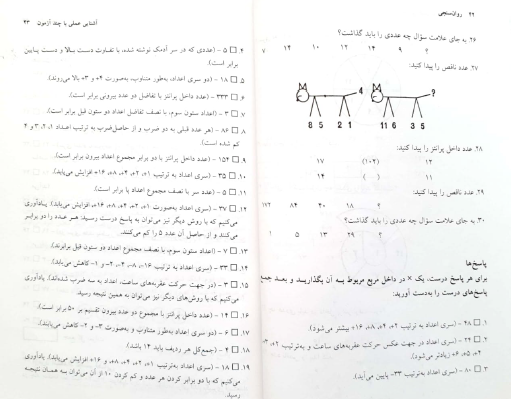 ۴۲ روان‌سنجی
۲۶. به جای علامت سؤال چه عددی را باید گذاشت؟
۷ ۱۴ ۱۰ ۱۲ ۱۴ ۹ ؟
۲۷. عدد ناقص را پیدا کنید:
4 ?
8 5 2 1 11 6 3 5
۲۸. عدد داخل پرانتز را پیدا کنید:
۱۷ (۱۰۲) ۱۲
۱۴ ( ) ۱۱
۲۹. عدد ناقص را پیدا کنید:
۱۷۲ ۸۴ ۴۰ ۱۸ ؟
۳۰. به جای علامت سؤال چه عددی را باید گذاشت؟
۱ ۵ ۱۳ ۲۹ ؟
پاسخ‌ها
برای هر پاسخ درست، یک × در داخل مربع مربوط به آن بگذارید و بعد جمع
پاسخ‌های درست را به‌دست آورید:
۱. □ ۴۸ – (سری اعداد به ترتیب ۲+، ۴+، ۸+، ۱۶+ بیشتر می‌شود).
۲. □ ۲۴ – (سری اعداد در جهت عکس حرکت عقربه‌های ساعت و به‌ترتیب ۲+، ۳+،
۴+، ۵+، ۶+ زیادتر می‌شود).
۳. □ ۸۰ – (سری اعداد به‌ترتیب ۳۳– پایین می‌آید).
آشنایی عملی با چند آزمون ۴۳
۴. □ ۵ – (عددی که در سر آدمک نوشته شده، با تفاوت دست بالا و دست پایین
برابر است).
۵. □ ۱۸ – (دو سری اعداد، به‌طور متناوب، به‌صورت ۴+ و ۳+ بالا می‌روند).
۶. □ ۳۳۳ – (عدد داخل پرانتز با تفاضل دو عدد بیرونی برابر است).
۷. □ ۳ – (اعداد ستون سوم، با نصف تفاضل اعداد دو ستون قبل برابر است).
۸. □ ۸۶ – (هر عدد قبلی به دو ضرب و از حاصل‌ضرب به ترتیب اعداد ۱، ۲، ۳ و ۴
کم شده است).
۹. □ ۱۵۴ – (عدد داخل پرانتز با دو برابر مجموع اعداد بیرون برابر است).
۱۰. □ ۳۵ – (سری اعداد به ترتیب ۱+، ۲+، ۴+، ۸+ و ۱۶+ افزایش می‌یابد).
۱۱. □ ۵ – (سر با نصف مجموع اعداد پا برابر است).
۱۲. □ ۳۷ – (سری اعداد به‌صورت ۱+، ۲+، ۴+، ۸+ و ۱۶+ افزایش می‌یابد). یادآوری
می‌کنیم که با روش دیگر نیز می‌توان به پاسخ درست رسید: هر عدد را دو برابر
می‌کنند و از حاصل آن عدد ۵ را کم می‌کنند.
۱۳. □ ۷ – (اعداد ستون سوم، با نصف مجموع اعداد دو ستون قبل برابرند).
۱۴. □ ۳۳ – (سری اعداد به ترتیب ۱۶–، ۸–، ۴–، ۲– و ۱– کاهش می‌یابد).
۱۵. □ ۳ – (در جهت حرکت عقربه‌های ساعت، اعداد به سه ضرب شده‌اند). یادآوری
می‌کنیم که با روش‌های دیگر نیز می‌توان به همین نتیجه رسید.
۱۶. □ ۱۴ – (عدد داخل پرانتز با مجموع دو عدد بیرون تقسیم بر ۵۰ برابر است).
۱۷. □ ۶ – (دو سری اعداد به‌طور متناوب و به‌صورت ۳– و ۲– کاهش می‌یابند).
۱۸. □ ۴ – (جمع‌کل هر ردیف باید ۱۴ باشد).
۱۹. □ ۱۸ – (سری اعداد به‌ترتیب ۱+، ۲+، ۴+، ۸+ و ۱۶+ افزایش می‌یابد). یادآوری
می‌کنیم که با دو برابر کردن هر عدد و کم کردن ۱۰ از آن می‌توان به همان نتیجه
رسید.